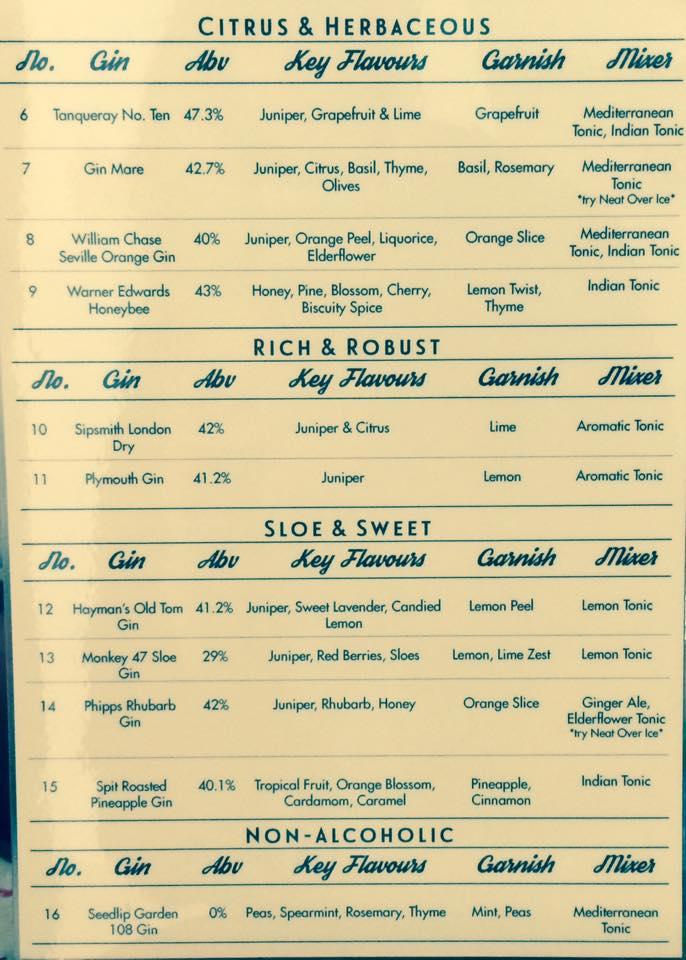 CITRUS & HERBACEOUS
No. Gin Abv Key Flavours Garnish Mixer
6 Tanqueray No. Ten 47.3% Juniper, Grapefruit & Lime Grapefruit Mediterranean
Tonic, Indian Tonic
7 Gin Mare 42.7% Juniper, Citrus, Basil, Thyme, Basil, Rosemary Mediterranean
Olives Tonic
*try Neat Over Ice*
8 William Chase 40% Juniper, Orange Peel, Liquorice, Orange Slice Mediterranean
Seville Orange Gin Elderflower Tonic, Indian Tonic
9 Warner Edwards 43% Honey, Pine, Blossom, Cherry, Lemon Twist, Indian Tonic
Honeybee Biscuity Spice Thyme
RICH & ROBUST
No. Gin Abv Key Flavours Garnish Mixer
10 Sipsmith London 42% Juniper & Citrus Lime Aromatic Tonic
Dry
11 Plymouth Gin 41.2% Juniper Lemon Aromatic Tonic
SLOE & SWEET
No. Gin Abv Key Flavours Garnish Mixer
12 Hayman's Old Tom 41.2% Juniper, Sweet Lavender, Candied Lemon Peel Lemon Tonic
Gin Lemon
13 Monkey 47 Sloe 29% Juniper, Red Berries, Sloes Lemon, Lime Zest Lemon Tonic
Gin
14 Phipps Rhubarb 42% Juniper, Rhubarb, Honey Orange Slice Ginger Ale,
Gin Elderflower Tonic
*try Neat Over Ice*
15 Spit Roasted 40.1% Tropical Fruit, Orange Blossom, Pineapple, Indian Tonic
Pineapple Gin Cardamom, Caramel Cinnamon
NON-ALCOHOLIC
No. Gin Abv Key Flavours Garnish Mixer
16 Seedlip Garden 0% Peas, Spearmint, Rosemary, Thyme Mint, Peas Mediterranean
108 Gin Tonic